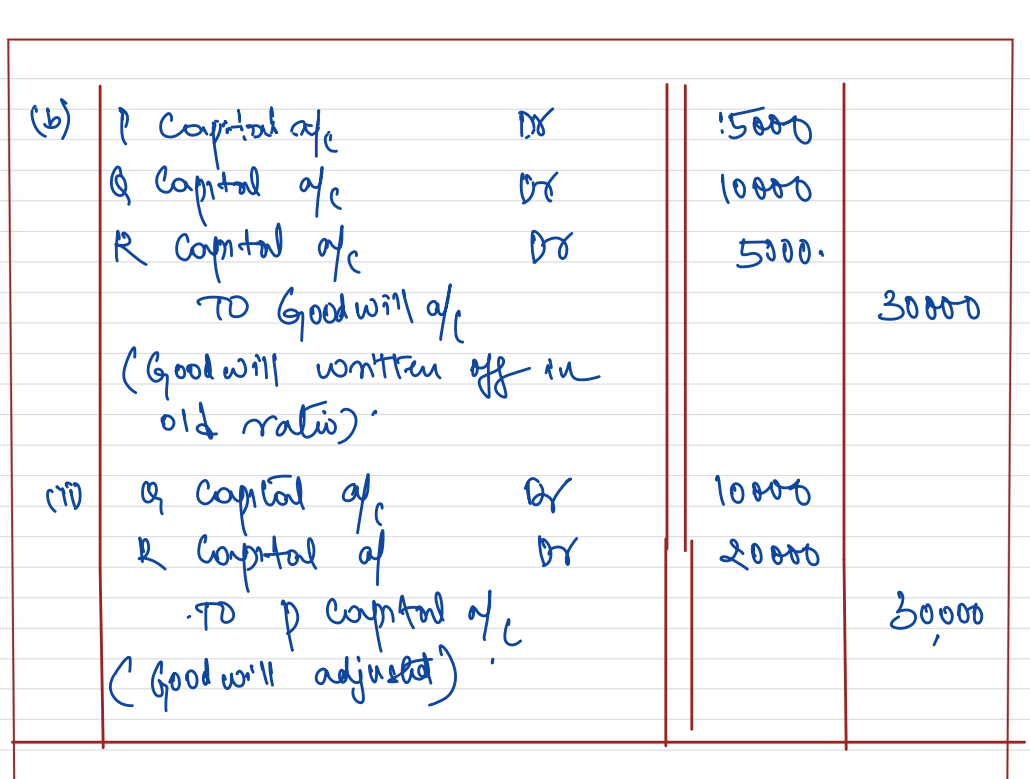 (b) P Capital a/c Dr 15000
Q Capital a/c Dr 10000
R Capital a/c Dr 5000.
TO Goodwill a/c 30000
(Goodwill written off in
old ratio).
(ii) Q Capital a/c Dr 10000
R Capital a/ Dr 20000
TO P Capital a/c 30,000
(Goodwill adjusted)